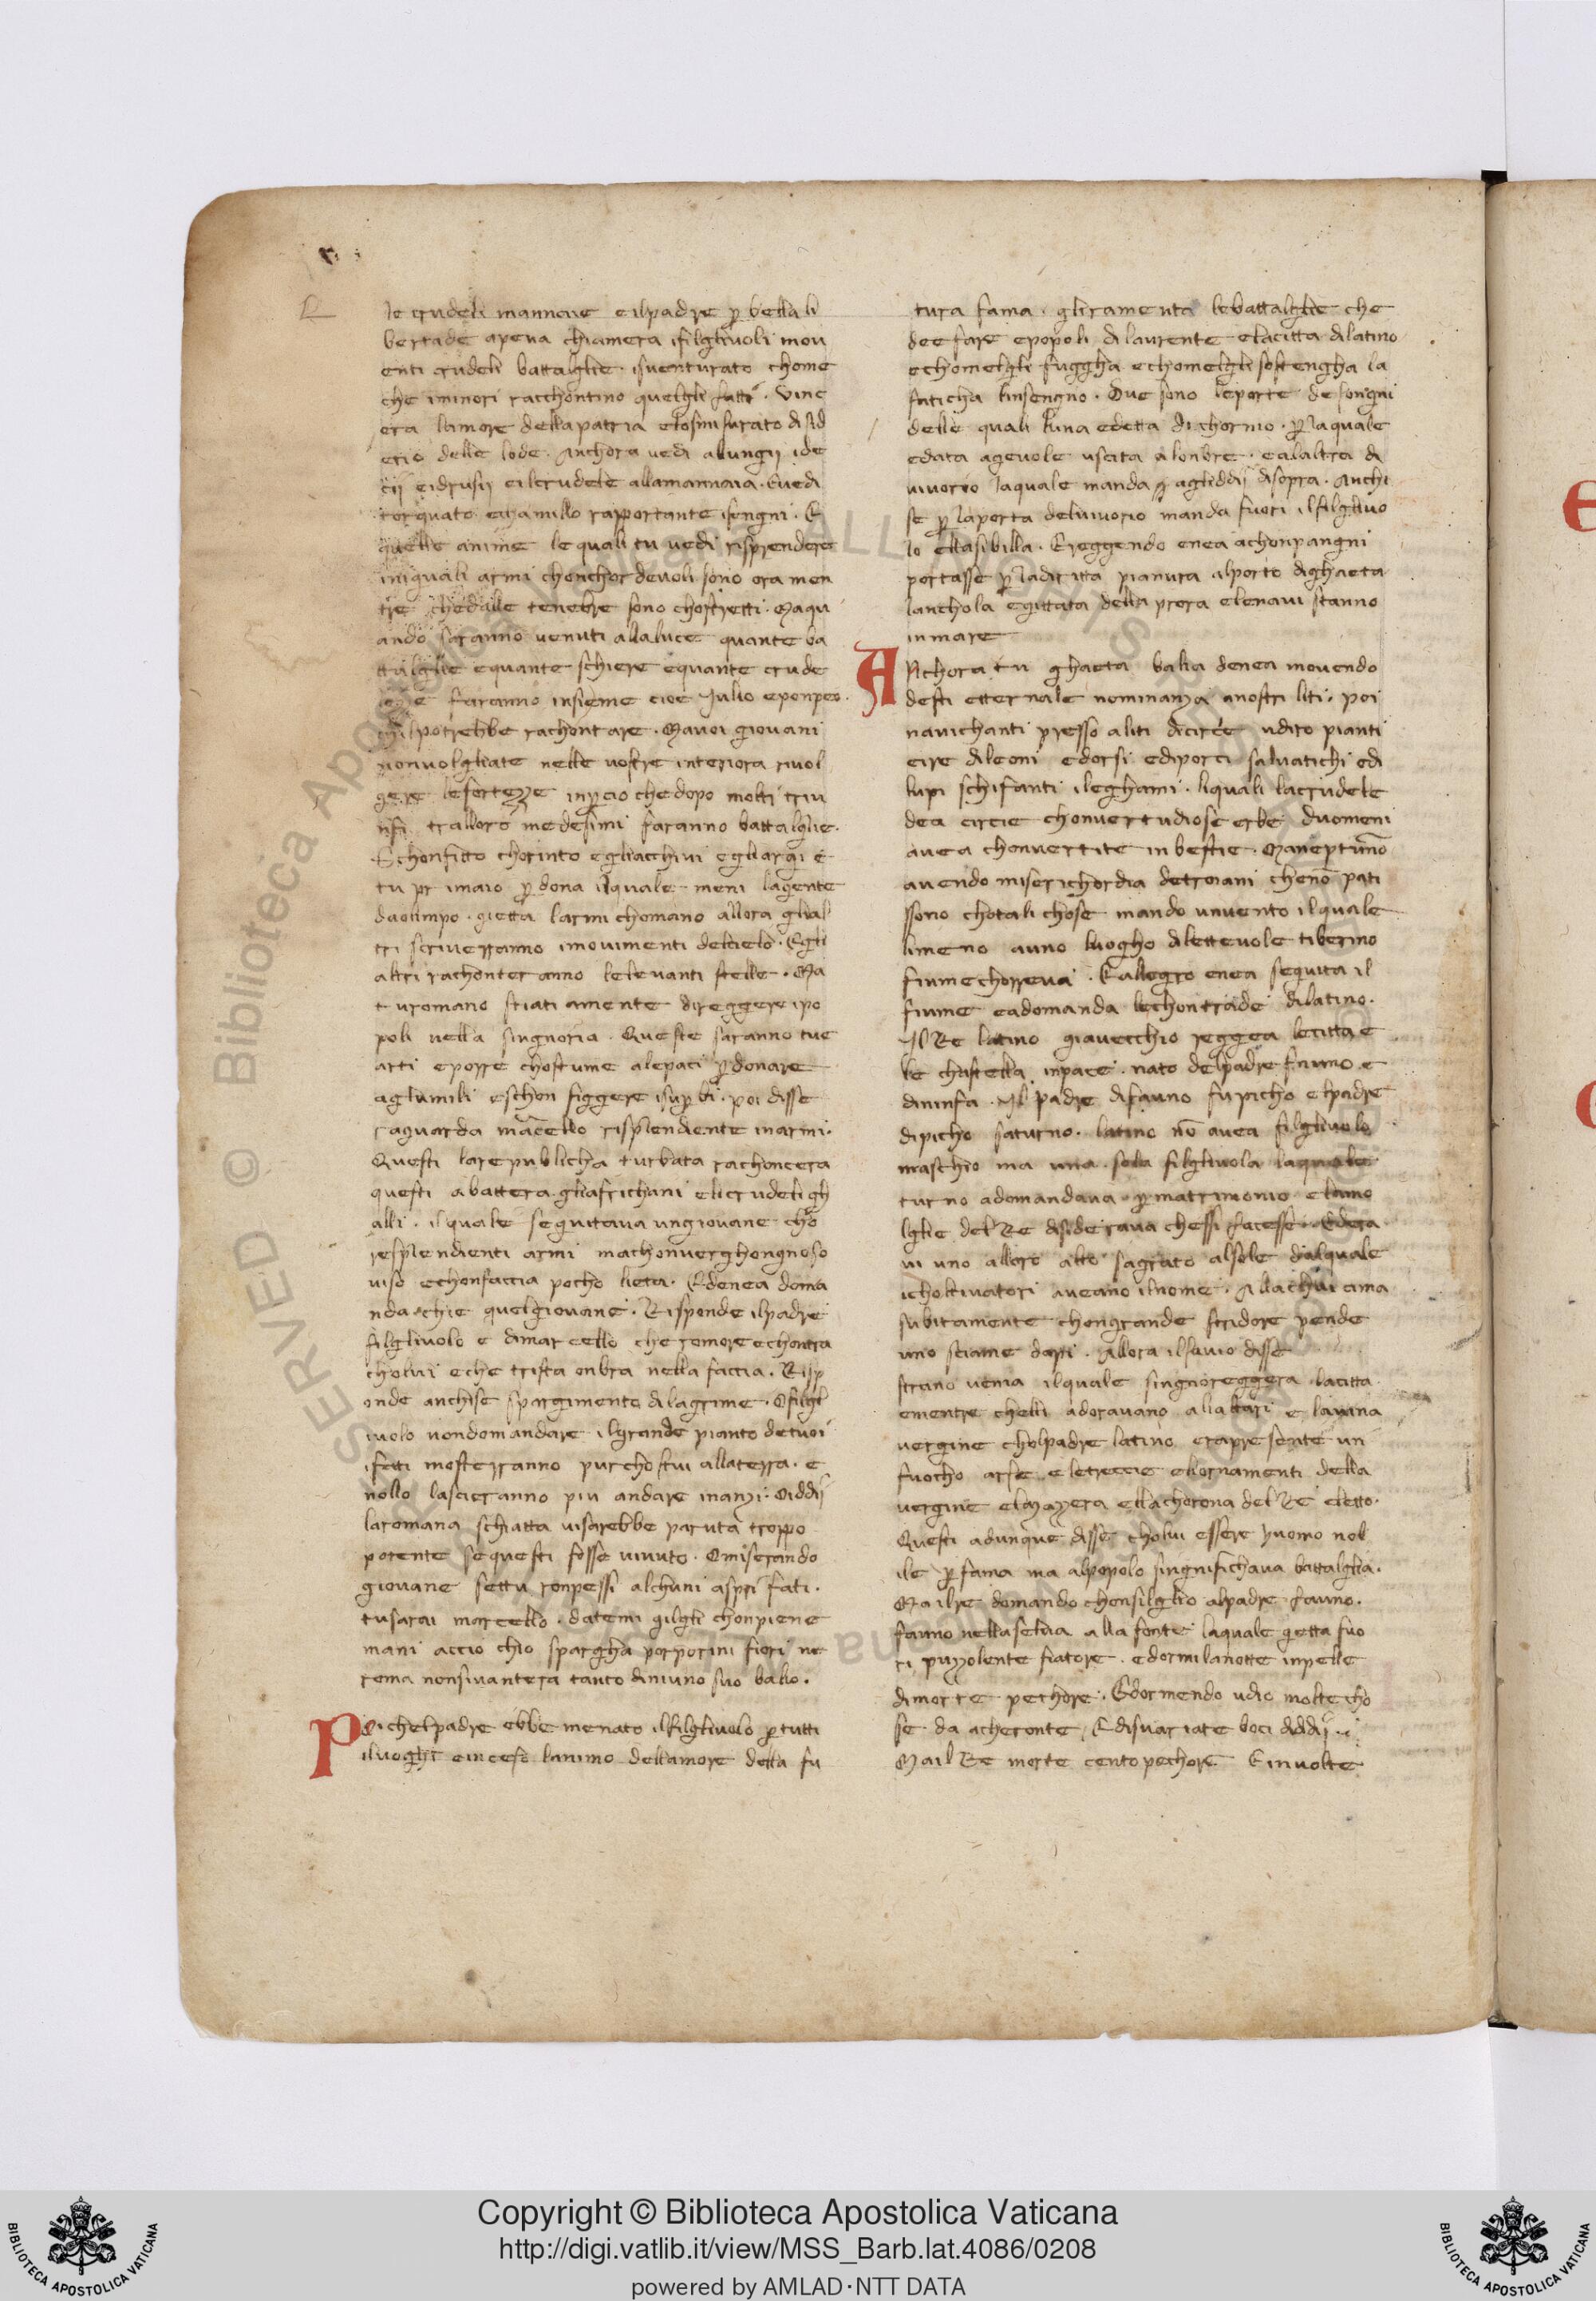 le crudeli mannoie eilpadre ꝑ bellali
bertade apena chiamera ifilglivoli mou
enti crudeli battalglie. isventurato chome
che iminori racchontino quelgli fatti. Vinc
era lamore dellapatria elosmisurato disid
erio delle lode. Anchora vedi alungij ide
cij eidrusij eilcrudele allamannaia. Evedi
torquato echamillo rapportante isengni. E
quelle anime le quali tu vedi risprendere
iniquali armi chonchordevoli sono ora men
tre chedalle tenebre sono chostretti. Maqu
ando saranno venuti allaluce quante ba
ttalglie equante schiere equante crude
faranno insieme cioe Julio eponpeo.
chilpotrebbe rachontare. Mavoi giovani
nonvolgliate nelle vostre interiora rivol
gere lefortezze inꝑcio chedopo molti triu
nfi tralloro medesimi faranno battalglie.
Echonfitto chorinto egliacchivi egliargi e
tu primaio ꝑdona ilquale meni lagente
daolimpo. gietta larmi chomano allora glial
tri scriverranno imovimenti delcielo. Egli
altri rachonteranno lelevanti stelle. Ma
turomano stiati amente direggere ipo
poli nella singnoria. Queste saranno tue
arti eporre chostume alepaci ꝑdonare
aglumili eschonfiggere isuꝑbi. poi disse
raguarda marcello risplendiente inarmi.
Questi larepublicha turbata rachoncera
questi abattera gliafrichani elicrudeli gh
alli. ilquale seguitava ungiovane cho
resplendienti armi machonverghongnoso
viso echonfaccia pocho lieta. Edenea doma
nda chie quelgiovane. Risponde ilpadre
filglivolo e dimarcello che romore echontra
cholui eche trista onbra nella faccia. Risp
onde anchise spargimento dilagrime. Ofilgl
ivolo nondomandare ilgrande pianto detuoi
ifati mosterranno purchostui allaterra. e
nollo lascieranno piu andare inanzi. Oiddij
laromana schiatta visarebbe paruta troppo
potente sequesti fosse vivuto. Omiserando
giovane settu ronpessi alchuni aspri fati.
tusarai marcello. datemi gilgli chonpiene
mani accio chio spargha porporini fiori ne
roma nonsivantera tanto diniuno suo balio.
Poichelpadre ebbe menato ilfilglivolo ꝑtutti
iluoghi einceso lanimo dellamore della fu
tura fama. gliramenta lebattalglie che
dee fare epopoli dilaurente elacitta dilatino
echomelgli fuggha echomelgli sostengha la
faticha linsengno. Due sono leporte desongni
delle quali luna edetta dichorno. ꝑlaquale
edata agevole uscita alonbre. ealaltra di
vivorio laquale manda agliddij disopra. Anchi
se ꝑ laporta delvivorio manda fuori ilfilglivo
lo ellasibilla. Ereggendo enea achonpangni
portasse ꝑladiritta pianura alporto dighaeta
lanchola egittata della prora elenavi stanno
inmare
Anchora tu ghaeta balia denea movendo
desti etternale nominanza anostri liti. poi
navichanti presso aliti dicircie udiro pianti
eire dileoni edorsi ediporci salvatichi edi
lupi schifanti ileghami. liquali lacrudele
dea circie chonvertudiose erbe duomeni
avea chonvertite inbestie. Maneptunno
avendo miserichordia detroiani cheno pati
ssono chotali chose mando unvento ilquale
limeno auno luogho dilettevole tiberino
fiumechorreva. Eallegro enea seguita il
fiume eadomanda lechontrade dilatino.
Il Re latino giavecchio reggea lecitta e
le chastella inpace. nato delpadre fauno e
dininfa. Il padre difauno fupicho elpadre
dipicho saturno. latino no avea filglivolo
maschio ma una sola filglivola laquale
turno adomandava ꝑmatrimonio elamo
lglie del Re disiderava chessi facesse. Edera
vi uno alloro alto sagrato alsole dalquale
icholtivatori aveano ilnome. Allachui cima
subitamente chongrande stridore pende
uno sciame dapi. Allora ilsavio disse
strano venia ilquale singnoreggera lacitta.
ementre chelli adoravano aliattari e lavina
vergine cholpadre latino erapresente un
fuocho arse eletreccie ellornamenti della
vergine elmazzera ellachorona del Re eletto.
Questi adunque disse cholui essere huomo nob
ile ꝑfama ma alpopolo singnifichava battalglia.
Ma ilre domando chonsilglio alpadre fauno.
fauno nellaselva alla fonte laquale getta fuo
ri puzzolente fiatore. edormilanotte inpelle
dimorte pechore. Edormendo udio molte cho
se da acheronte, Edisvariate boci diddij.
Mail Re morte centopechore Einvolte
Copyright © Biblioteca Apostolica Vaticana
http://digi.vatlib.it/view/MSS_Barb.lat.4086/0208
powered by AMLAD·NTT DATA
BIBLIOTECA APOSTOLICA VATICANA
BIBLIOTECA APOSTOLICA VATICANA